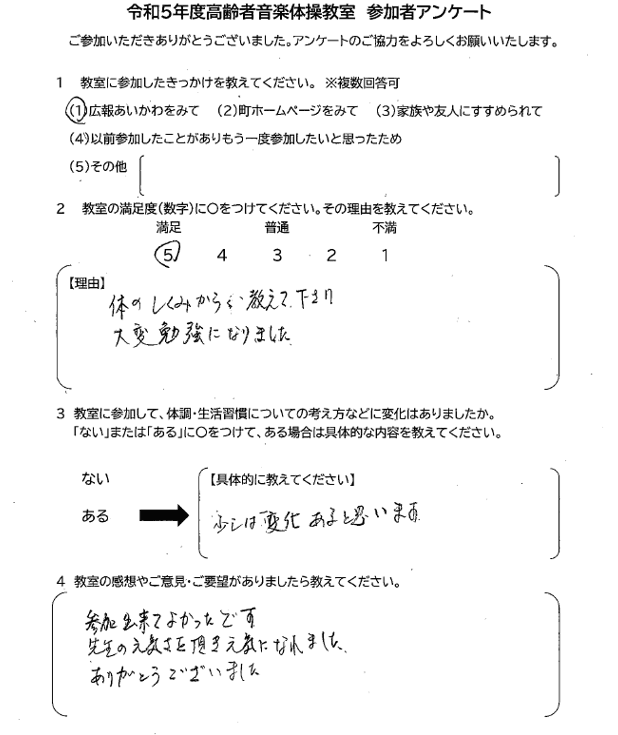 令和5年度高齢者音楽体操教室 参加者アンケート
ご参加いただきありがとうございました。アンケートのご協力をよろしくお願いいたします。
1 教室に参加したきっかけを教えてください。 ※複数回答可
(1)広報あいかわをみて (2)町ホームページをみて (3)家族や友人にすすめられて
(4)以前参加したことがありもう一度参加したいと思ったため
(5)その他
2 教室の満足度(数字)に〇をつけてください。その理由を教えてください。
満足 普通 不満
5 4 3 2 1
【理由】
体のしくみから 教えて下さり
大変勉強になりました
3 教室に参加して、体調・生活習慣についての考え方などに変化はありましたか。
「ない」または「ある」に〇をつけて、ある場合は具体的な内容を教えてください。
ない 【具体的に教えてください】
ある 少しは変化あると思います
4 教室の感想やご意見・ご要望がありましたら教えてください。
参加出来てよかったです
先生の元気さを頂き元気になれました。
ありがとうございました